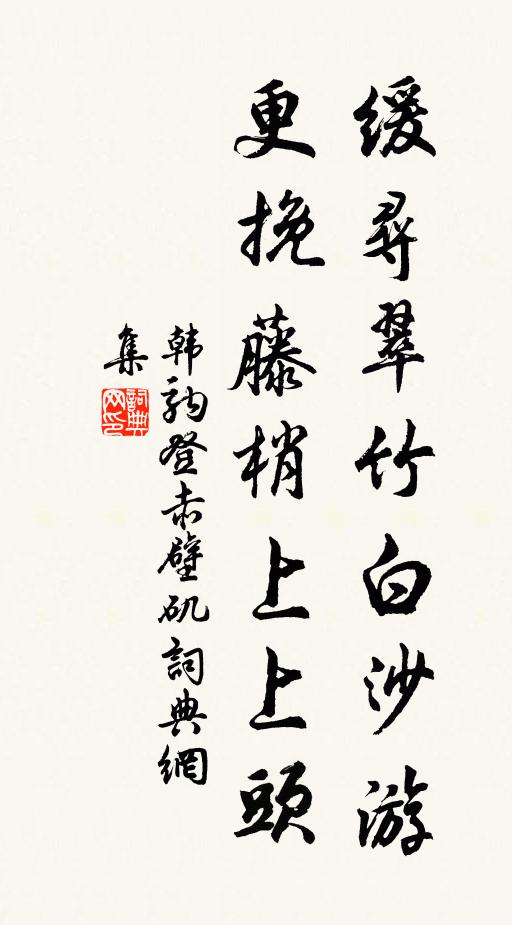 缓尋翠竹白沙游
更挽藤梢上上頭
韩駒登赤壁矶詞典網
集
詞典
网印